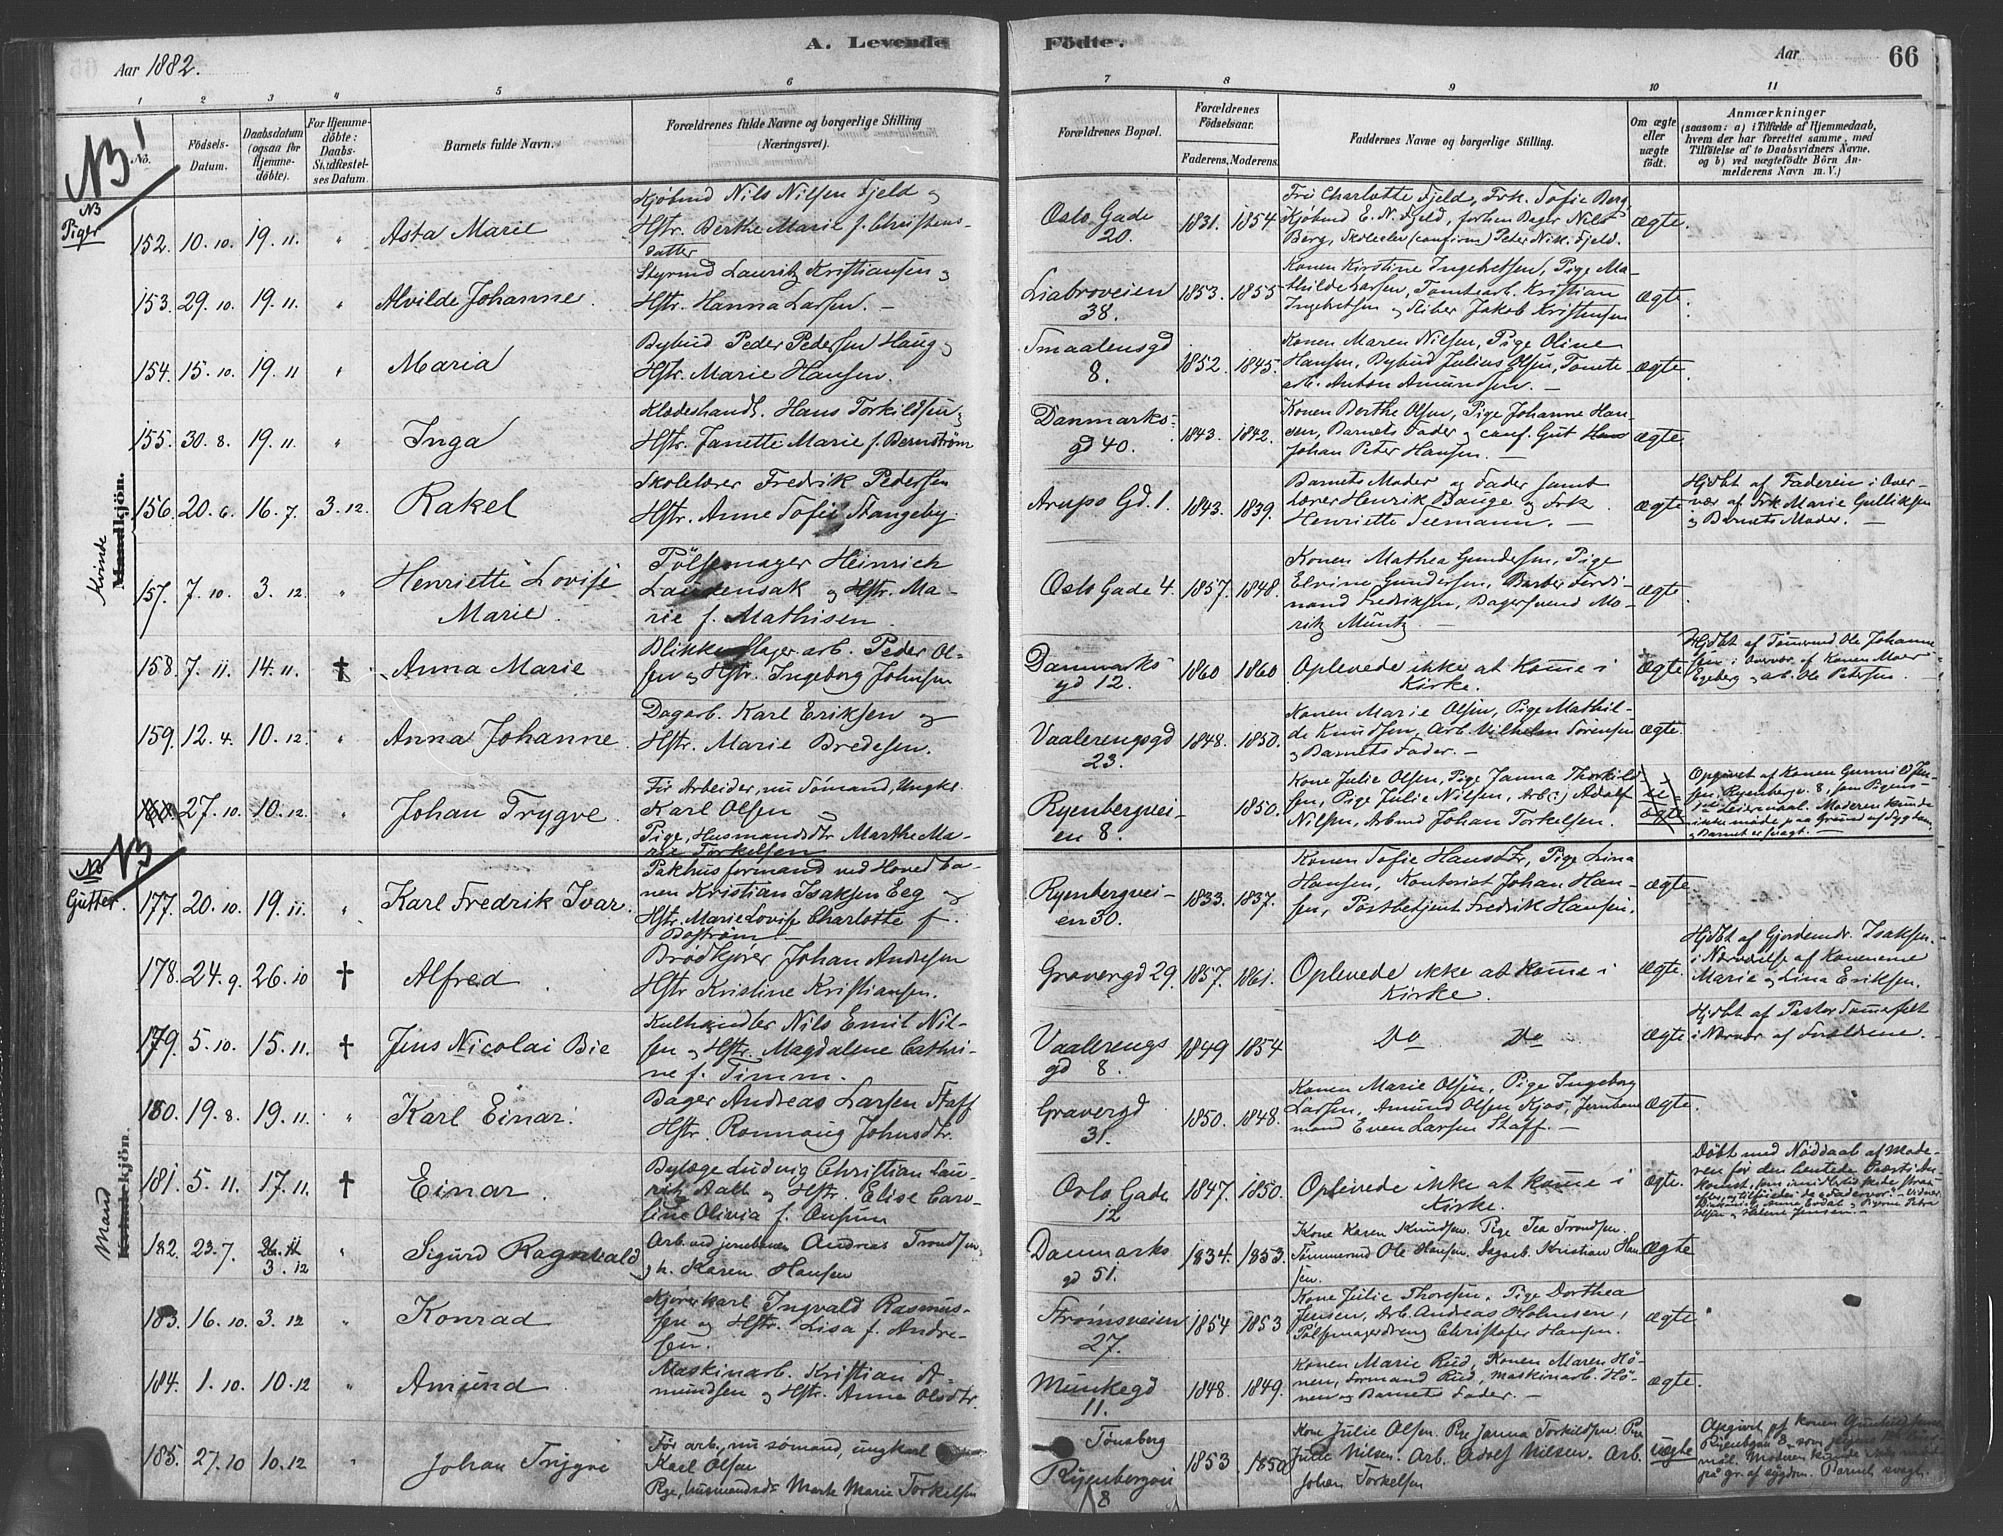 A. Levende Födte.
Aar 1882.
Aar
66
1 2 3 4 5 6 7 8 9 10 11
NB!
No.
Födsels-
Datum.
Daabsdatum
(ogsaa for
Hjemme-
döbte).
For Hjemme-
döbte:
Daabs-
Stadfæstel-
ses Datum.
Barnets fulde Navn.
Forældrenes fulde Navne og borgerlige Stilling
(Næringsvei).
Forældrenes Bopæl.
Forældrenes
Födselsaar.
Faderens. Moderens.
Faddernes Navne og borgerlige Stilling.
Om ægte
eller
uægte
födt.
Anmærkninger
(saasom: a) i Tilfælde af Hjemmedaab,
hvem der har forrettet samme, med
Tilföielse af to Daabsvidners Navne,
og b) ved uægtefödte Börn An-
melderens Navn m. V.)
NB
Piger
Kvinde
Mandkjön.
152. 10. 10. 19. 11. " Asta Marie
Kjøbmd Nils Nilsen Fjeld og
Hstr. Berthe Marie f. Christens-
datter
Oslo Gade
20.
1831. 1854
Fru Charlotte Fjeld, Frk. Sofie Berg,
Kjøbmd E. N. Fjeld, forhen Bager Nils
Berg, Skoleelev (confirm) Peter Nik. Fjeld.
ægte.
153. 29. 10. 19. 11. " Alvilde Johanne.
Styrmd Lauritz Kristiansen og
Hstr. Hanna Larsen. –
Liabroveien
38.
1853. 1855
Konen Kirstine Ingebretsen, Pige Ma-
thilde Larsen, Tomtearb. Kristian
Ingebretsen og Fiber Jakob Kristensen
ægte.
154. 15. 10. 19. 11 " Maria
Bybud Peder Pedersen Haug og
Hstr. Marie Hansen.
Smaalensgd
8.
1852. 1845.
Konen Maren Nilsen, Pige Oline
Hansen, Bybud Julius Olsen, Tomte-
arb. Anton Amundsen. –
ægte.
155. 30. 8. 19. 11. " Inga
Klædeshandl. Hans Torkildsen og
Hstr. Janette Marie f. Bernström
Danmarks-
gd 40.
1843. 1842.
Konen Berthe Olsen, Pige Johanne Han-
sen, Barnets Fader og conf. Gut Hans
Johan Peter Hansen. –
ægte.
156. 20. 6. 16. 7. 3. 12. Rakel
Skolelærer Fredrik Pedersen
Hstr. Anne Sofie Stangeby.
Arups Gd. 1.
1843. 1839.
Barnets Moder og Fader samt
Lærer Henrik Bauge og Frk.
Henriette Seemann. –
ægte
Hjdbt af Faderen i Over-
vær af Frk Marie Gulliksen
og Barnets Moder. –
157. 7. 10. 3. 12. " Henriette Lovise
Marie.
Pölsemager Heinrich
Laudensak og Hstr. Ma-
rie f. Mathisen.
Oslo Gade 4.
1857. 1848.
Konen Mathea Gundersen, Pige
Elvine Gundersen, Barber Ferdi-
nand Fredriksen, Bagersvend Mo-
ritz Müntz. –
ægte.
158. 7. 11. 14. 11. † Anna Marie
Blikkenslager arb. Peder Ol-
sen og Hstr. Ingeborg Johnsen
Danmarks-
gd 12.
1860 1860
Oplevede ikke at komme i
Kirke.
ægte
Hjdbt af Tömmermd Ole Johanne-
sen i Overvær af Konen Moer
Egeberg og arb. Ole Petersen.
159. 12. 4. 10. 12. " Anna Johanne.
Dagarb. Karl Eriksen og
Hstr. Marie Bredesen.
Vaalerengsgd
23.
1848. 1850.
Konen Marie Olsen, Pige Mathil-
de Knudsen, Arb. Vilhelm Sörensen
og Barnets Fader. –
ægte.
160. 27. 10. 10. 12. " Johan Trygve.
För Arbeider, nu Sömand, Ungkl.
Karl Olsen
Pige, Husmandsdtr Marthe Ma-
rie Torkelsen
Ryenbergvei-
en 8.
1850.
Kone Julie Olsen, Pige Janna Thorkild-
sen, Pige Julie Nilsen, Arb(:) Adolf
Nilsen, Arbmd Johan Torkelsen.
u-
ægte
Opgivet af Konen Gunnild Jen-
sen, Ryenbergv. 8, som Pigens
Moderen kunde
ikke møde paa Grund af Sygdom,
og Barnet er svagt. –
NB
NB
Gutter.
Mand
Kvindekjön.
177. 20. 10. 19. 11. " Karl Fredrik Ivar.
Pakhusformand ved Hovedba-
nen Kristian Isaksen Eeg og
Hstr. Marie Lovise Charlotte f.
Boström. –
Ryenbergvei-
en 30.
1833. 1837.
Konen Sofie Hansdtr, Pige Lina
Hansen, Kontorist Johan Han-
sen, Postbetjent Fredrik Hansen.
ægte
178. 24. 9. 26. 10 † Alfred
Brödkjører Johan Andresen
Hstr Kristine Kristiansen.
Gravergd 29.
1857. 1861.
Oplevede ikke at komme i
Kirke.
ægte.
Hjdbt af Gjordemdr. Isaksen
i Nærværelse af Konerne
Marie og Lina Eriksen.
179. 5. 10. 15. 11. † Jens Nicolai Bie
Kulhandler Nils Emil Nil-
sen og Hstr. Magdalene Cathri-
ne f. Timm.
Vaalerengs
gd 8.
1849 1854
Do Do
ægte
Hjdbt af Pastor Tomerfelt
i Nærvær af Forældrene.
180. 19. 8. 19. 11. " Karl Einar.
Bager Andreas Larsen Staff
Hstr. Rönnaug Johnsdtr.
Gravergd
31.
1850. 1848.
Konen Marie Olsen, Pige Ingeborg
Larsen, Amund Olsen Kjos, Jernbane
mand Even Larsen Staff. –
ægte.
181. 5. 11. 17. 11. † Einar.
Bylæge Ludvig Christian Lau-
ritz Aall og Hstr. Elise Caro-
line Olivia f. Onsum
Oslo Gade
12
1847. 1850.
Oplevede ikke at komme i
Kirke.
ægte.
Döbt med Nöddaab af Mode-
ren för den hentede Præsts An-
komst, som imidlertid skede strax
efter,
182. 23. 7. 26. 11
3. 12 " Sigurd Ragnvald
Arb. ved jernbanen Andreas Trondsen
og h. Karen Hansen
Danmarks
gd 51.
1834. 1853.
Kone Karen Knudsen. Pige Tea Trondsen.
Tömmermd Ole Hansen. Dagarb. Kristian Han-
sen.
ægte
183. 16. 10. 3. 12 " Konrad
Kjörerkarl Ingvald Rasmus-
sen og Hstr. Lisa f. Andre-
sen.
Strömsveien
27.
1854 1853
Kone Julie Thoresen, Pige Dorthea
Jensen, Arb. Andreas Holmsen,
Pölsemagerdreng Christofer Hansen.
ægte
184. 1. 10. 10. 12 " Amund
Maskinarb. Kristian A-
mundsen og Hstr. Anne Olsdtr.
Munkegd
11.
1848. 1849.
Konen Marie Rud, Konen Maren Hö-
nen, Formand Rud, Maskinarb. Hö-
nen og Barnets Fader. –
ægte.
185. 27. 10 10. 12 " Johan Trygve
Før arb., nu sømand, ungkarl
Karl Olsen
Pige, husmandsdt Marte Marie Torkelsen
Tönsberg
Ryenbergvei
8
1853 1850
Kone Julie Olsen. Pige Janna Torkildsen. Pige
Julie Nilsen. Arb. Adolf Nilsen. Arb.
Johan Torkelsen
uægte
Opgivet af konen Gunhild Jensen
Ryenbgvn 8 – som pigens
Moderen kunde ikke møde
på gr. af sygdom. Barnet svagt.